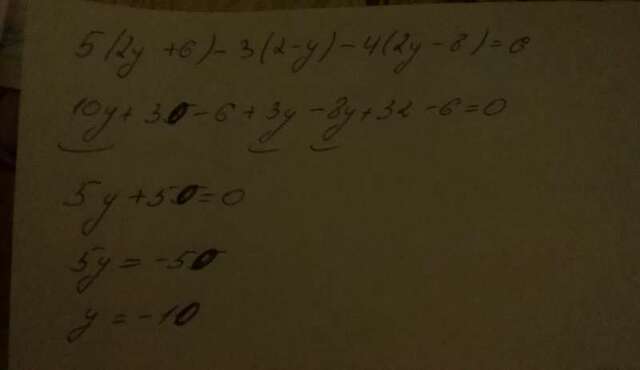 5(2y+6)-3(2-y)-4(2y-8)=6
10y+30-6+3y-8y+32-6=0
5y+50=0
5y=-50
y=-10